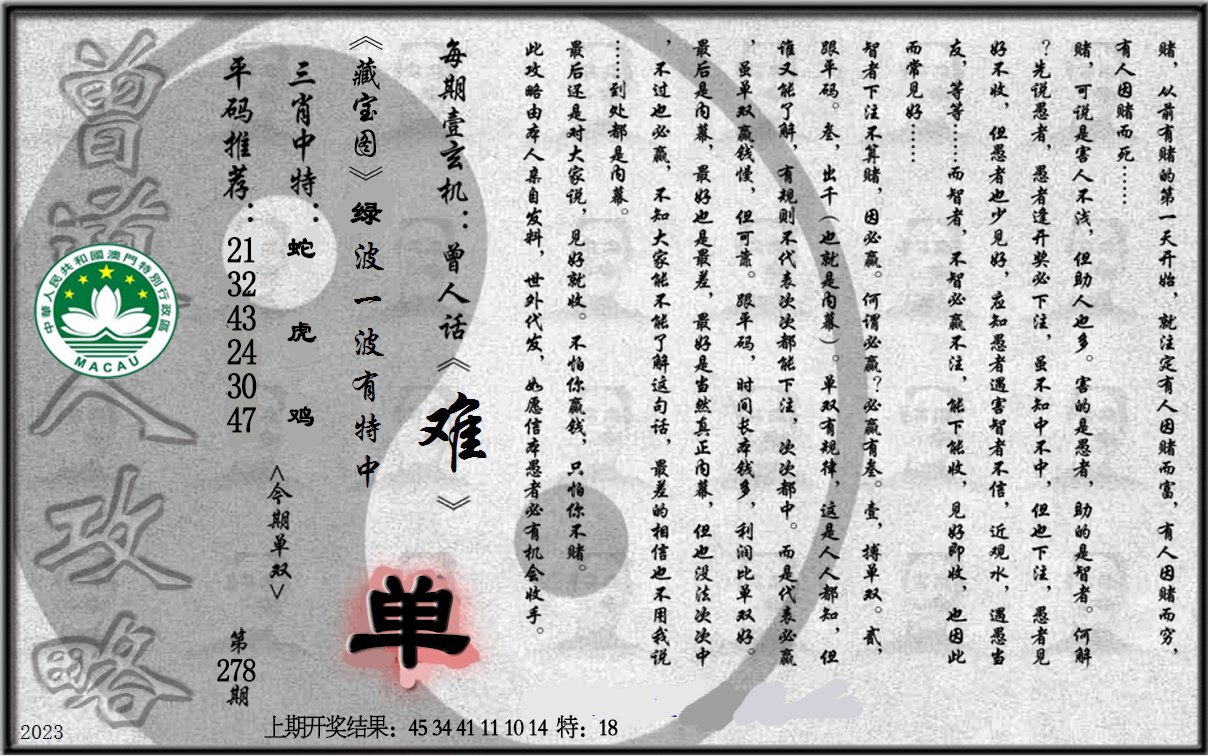 赌，从前有赌的第一天开始，就注定有人因赌而富，有人因赌而穷，
有人因赌而死……
赌，可说是害人不浅，但助人也多。害的是愚者，助的是智者。何解
？先说愚者，愚者逢开奖必下注，虽不知中不中，但也下注，愚者见
好不收，但愚者也少见好，应知愚者遇害智者不信，近观水，遇愚当
友，等等……而智者，不智必赢不注，能下能收，见好即收，也因此
而常见好……
智者下注不算赌，因必赢。何谓必赢？必赢有叁。壹，搏单双。贰，
跟平码。叁，出千（也就是内幕）。单双有规律，这是人人都知，但
谁又能了解，有规则不代表次次都能下注，次次都中。而是代表必赢
，虽单双赢钱慢，但可靠。跟平码，时间长本钱多，利润比单双好。
最后是内幕，最好也是最差，最好是当然真正内幕，但也没法次次中
，不过也必赢，不知大家能不能了解这句话，最差的相信也不用我说
……到处都是内幕。
最后还是对大家说，见好就收。不怕你赢钱，只怕你不赌。
此攻略由本人亲自发料，世外代发，如愿信本愚者必有机会收手。
每期壹玄机：曾人话《难》
《藏宝图》绿波一波有特中
单
三肖中特：蛇 虎 鸡
<今期单双>
平码推荐：21 32 43 24 30 47
第278期
曾道人攻略
中華人民共和國澳門特別行政區
MACAU
上期开奖结果：45 34 41 11 10 14 特：18
2023